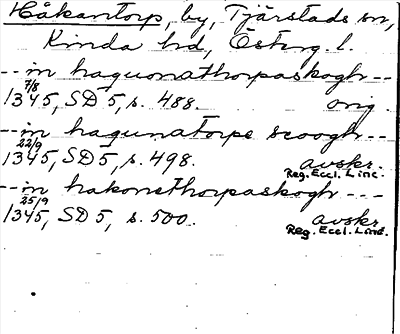 Håkantorp, by, Tjärstads sn,
Kinda hd, Österg. l.
-- in haguonathorpaskogh --
1345, 7/8 SD 5, s. 488. orig.
-- in hagunatorpe scoogh --
1345, 22/9 SD 5, s. 498. avskr.
Reg. Eccl. Linc.
-- in hakonethorpaskogh ---
1345, 25/9 SD 5, s. 500. avskr.
Reg. Eccl. Linc.